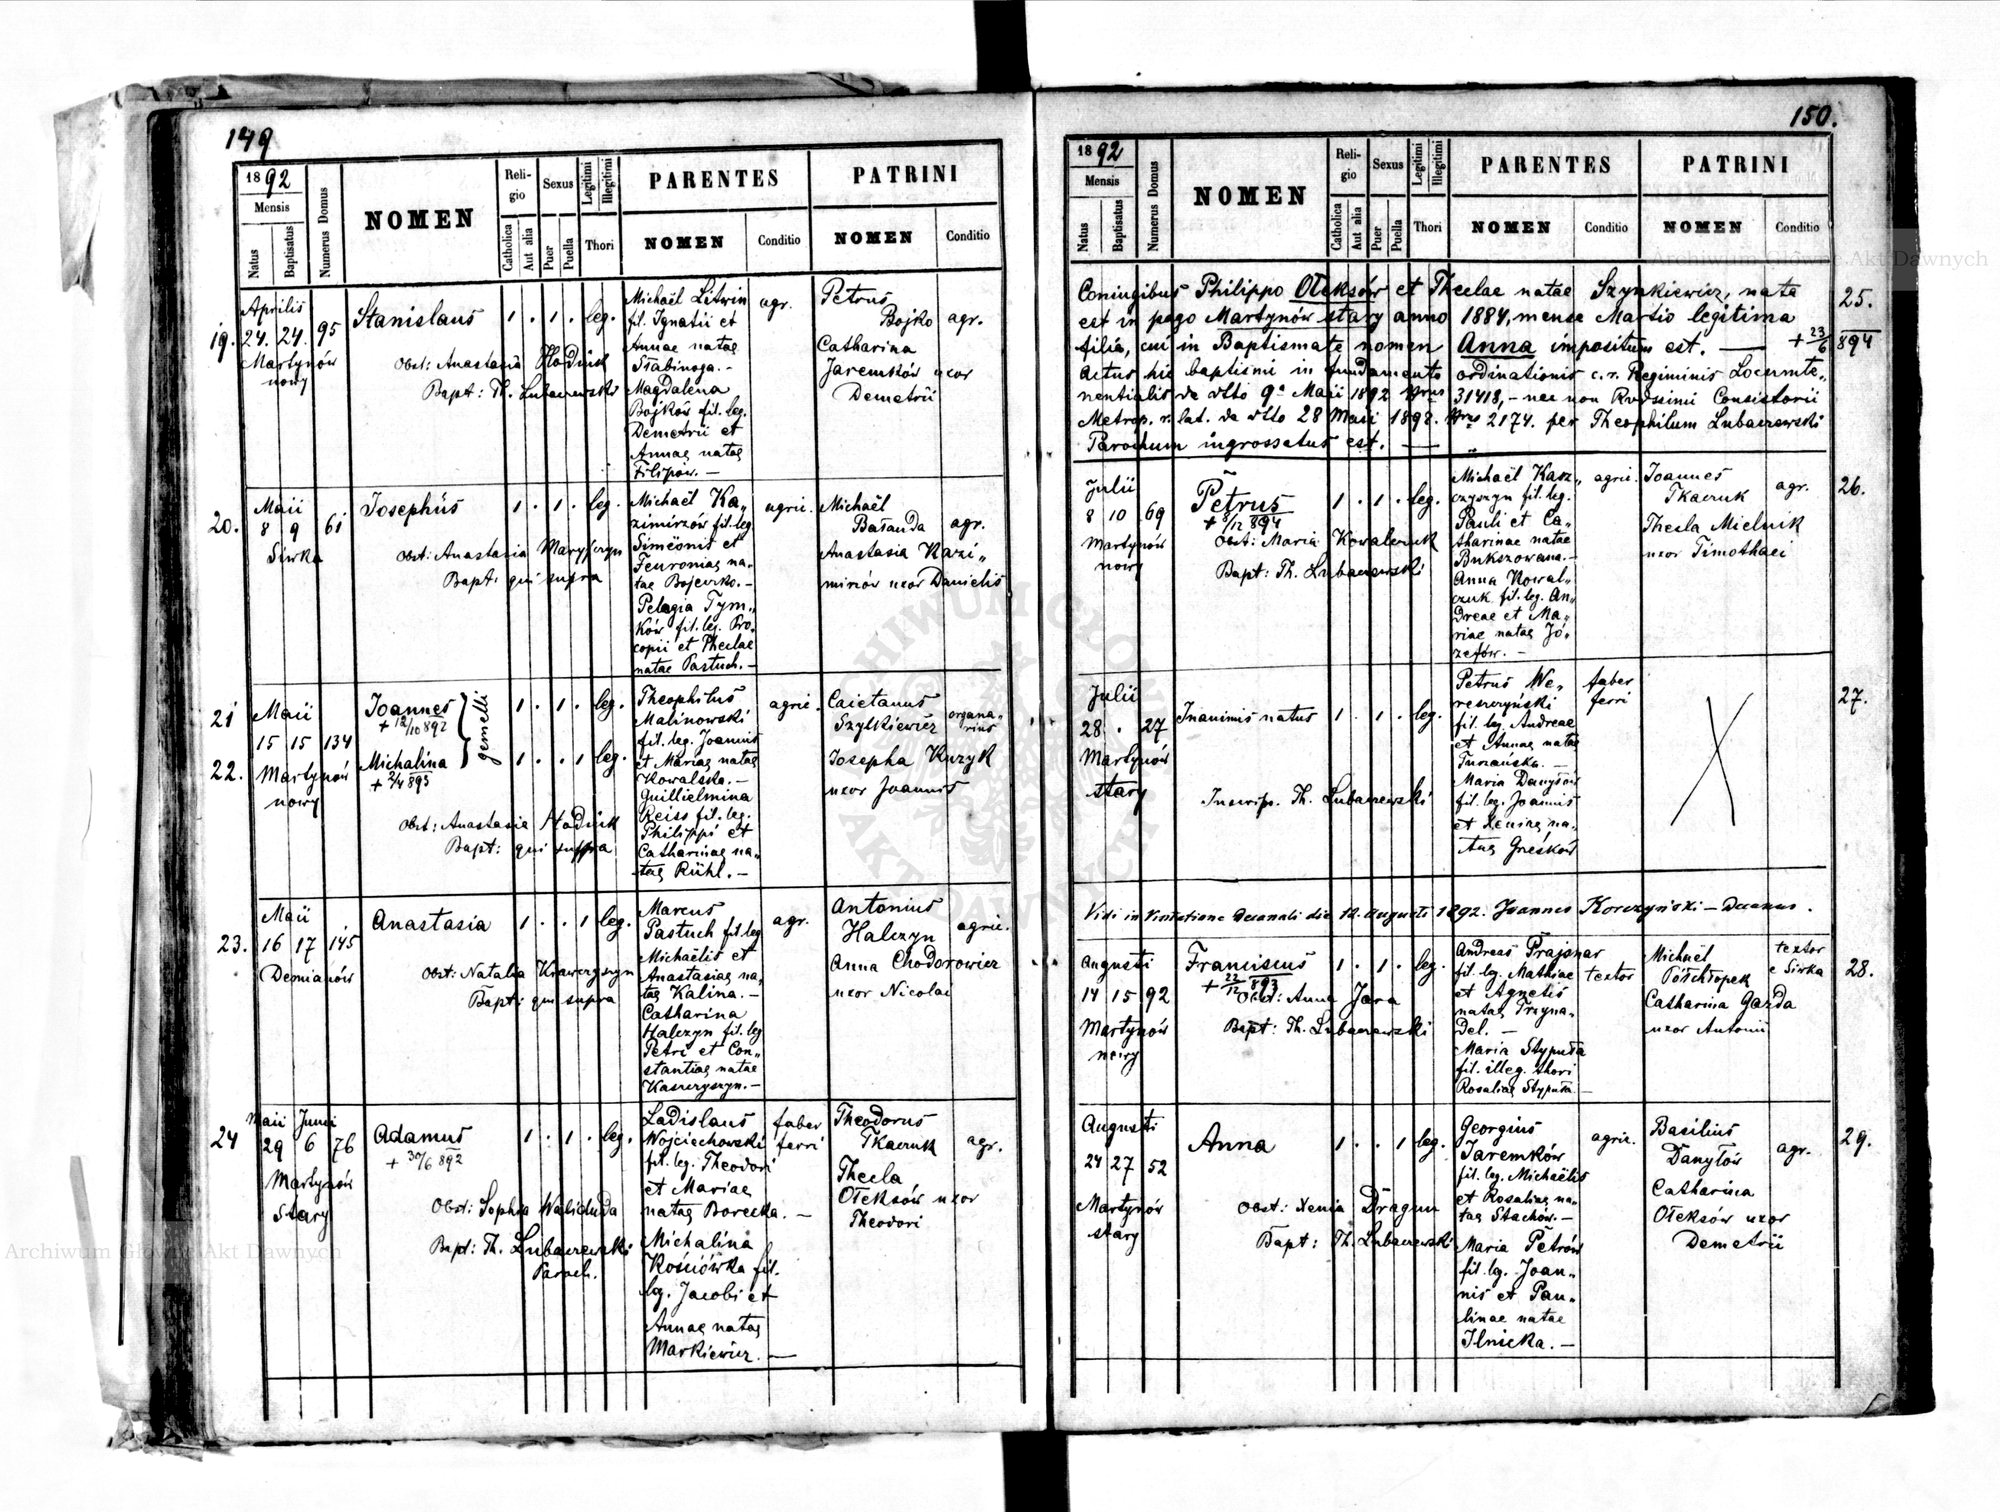 149
1892
Mensis
Natus
Baptisatus
Numerus Domus
NOMEN
Religio
Catholica
Aut alia
Sexus
Puer
Puella
Legitimi
Illegitimi
Thori
PARENTES
NOMEN
Conditio
PATRINI
NOMEN
Conditio
19.
Aprilis
24. 24. 95
Martynów
nowy
Stanislaus
1 . 1 . leg.
Obst: Anastasia Hodiuk
Bapt: Th. Lubaczewski
Michaël Litwin
fil. Ignatii et
Annae natae
Słabinoga. —
Magdalena
Bojków fil. leg.
Demetrii et
Annae natae
Filipów. —
agr.
Petrus
Bojko agr.
Catharina
Jaremków uxor
Demetrii
20.
Maii
8 9 61
Siwka
Josephus
1 . 1 . leg.
Obst: Anastasia
Bapt: qui supra
Michaël Ka„
zimirzów fil. leg.
Simeonis et
Fevroniae na„
tae Bojeczko. —
Pelagia Tym„
ków fil. leg. Pro„
copii et Theclae
natae Pastuch. —
agric.
Michaël
Bałanda agr.
Anastasia Kazi„
mirzów uxor Danielis
21
22.
Maii
15 15 134
Martynów
nowy
Joannes
+ 12/10 892
Michalina
+ 2/4 893
gemelli
1 . 1 . leg.
1 . . 1 leg.
Obst: Anastasia Hodiuk
Bapt: qui supra
Theophilus
Malinowski
fil. leg. Joannis
et Mariae natae
Kowalska. —
Guillielmina
Reiss fil. leg.
Philippi et
Catharinae na„
tae Rühl. —
agric.
Caietanus
Szylkiewicz organa„
rius
Josepha Kuzyk
uxor Joannis
23.
Maii
16 17 145
Demianów
Anastasia
1 . . 1 leg.
Obst: Natalia Krawczyszyn
Bapt: qui supra
Marcus
Pastuch fil. leg.
Michaëlis et
Anastasiae na„
tae Kalina. —
Catharina
Halczyn fil. leg.
Petri et Con„
stantiae natae
Kaszczyszyn. —
agr.
Antonius
Halczyn agric.
Anna Chodorowicz
uxor Nicolai
24
Maii Junii
29 6 76
Martynów
stary
Adamus
+ 30/6 892
1 . 1 . leg.
Obst: Sophia Waliduda
Bapt: Th. Lubaczewski
Paroch.
Ladislaus
Wojciechowski
fil. leg. Theodori
et Mariae
natae Borecka. —
Michalina
Kościówka fil.
leg. Jacobi et
Annae natae
Markiewicz. —
faber
ferri
Theodorus
Tkaczuk agr.
Thecla
Ołeksów uxor
Theodori
150.
1892
Mensis
Natus
Baptisatus
Numerus Domus
NOMEN
Religio
Catholica
Aut alia
Sexus
Puer
Puella
Legitimi
Illegitimi
Thori
PARENTES
NOMEN
Conditio
PATRINI
NOMEN
Conditio
Coniugibus Philippo Ołeksów et Theclae natae Szynkiewicz, nata
est in pago Martynów stary anno 1884, mense Martio legitima
filia, cui in Baptismate nomen Anna impositum est. — + 23/6 894
Actus hic baptismi in fundamento ordinationis c. r. Regiminis Locumte„
nentialis de dtto 9a Maii 1892 Nrus 31418, — nec non Rvdssimi Consistorii
Metrop. r. lat. de dtto 28 Maii 1892. Nrus 2174. per Theophilum Lubaczewski
Parochum ingrossatus est. —
25.
Julii
8 10 69
Martynów
nowy
Petrus
+ 8/12 894
1 . 1 . leg.
Obst: Maria Kowalczuk
Bapt: Th. Lubaczewski
Michaël Kasz„
czyszyn fil. leg.
Pauli et Ca„
tharinae natae
Bukszowana. —
Anna Kowal„
czuk fil. leg. An„
dreae et Ma„
riae natae Jó„
zefów. —
agric.
Joannes
Tkaczuk agr.
Thecla Mielnik
uxor Timothaei
26.
Julii
28 . 27
Martynów
stary
Inanimis natus
1 . 1 . leg.
Inscrip. Th. Lubaczewski
Petrus We„
reszczyński
fil. leg. Andreae
et Annae natae
Turzańska. —
Maria Danyłów
fil. leg. Joannis
et Xeniae na„
tae Greśków
faber
ferri
27.
Vidi in Visitatione Decanali die 12. Augusti 1892. Joannes Korczyński — Decanus.
Augusti
14 15 92
Martynów
nowy
Franciscus
+ 22/12 893
1 . 1 . leg.
Obst: Anna Jara
Bapt: Th. Lubaczewski
Andreas Prajsnar
fil. leg. Mathiae
et Agnetis
natae Trzyna„
del. —
Maria Stypuła
fil. illeg. thori
Rosaliae Stypuła —
textor
Michaël
Półchłopek
Catharina Gazda
uxor Antonii
textor
e Siwka
28.
Augusti
24 27 52
Martynów
stary
Anna
1 . . 1 leg.
Obst: Xenia Dragun
Bapt: Th. Lubaczewski
Georgius
Jaremków
fil. leg. Michaëlis
et Rosaliae na„
tae Stachów. —
Maria Petrów
fil. leg. Joan„
nis et Pau„
linae natae
Ilnicka. —
agric.
Basilius
Danyłów agr.
Catharina
Ołeksów uxor
Demetrii
29.
Archiwum Główne Akt Dawnych
Archiwum Główne Akt Dawnych
ARCHIWUM GŁÓWNE AKT DAWNYCH